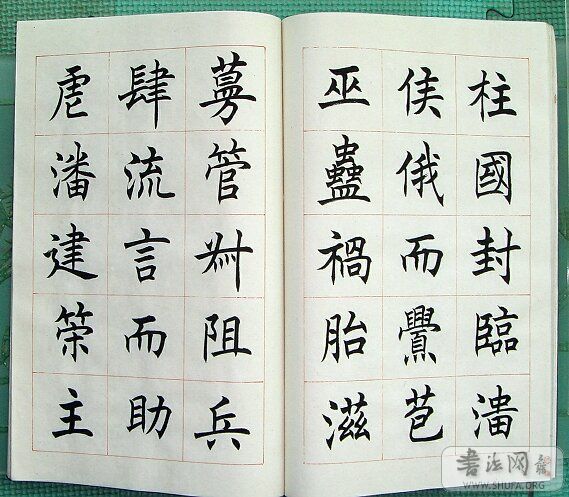 柱國封臨淄
侯俄而釁苞
巫蠱禍胎滋
蔓管叔阻兵
肆流言而助
虐潘建策主
書法网
WWW.SHUFA.ORG